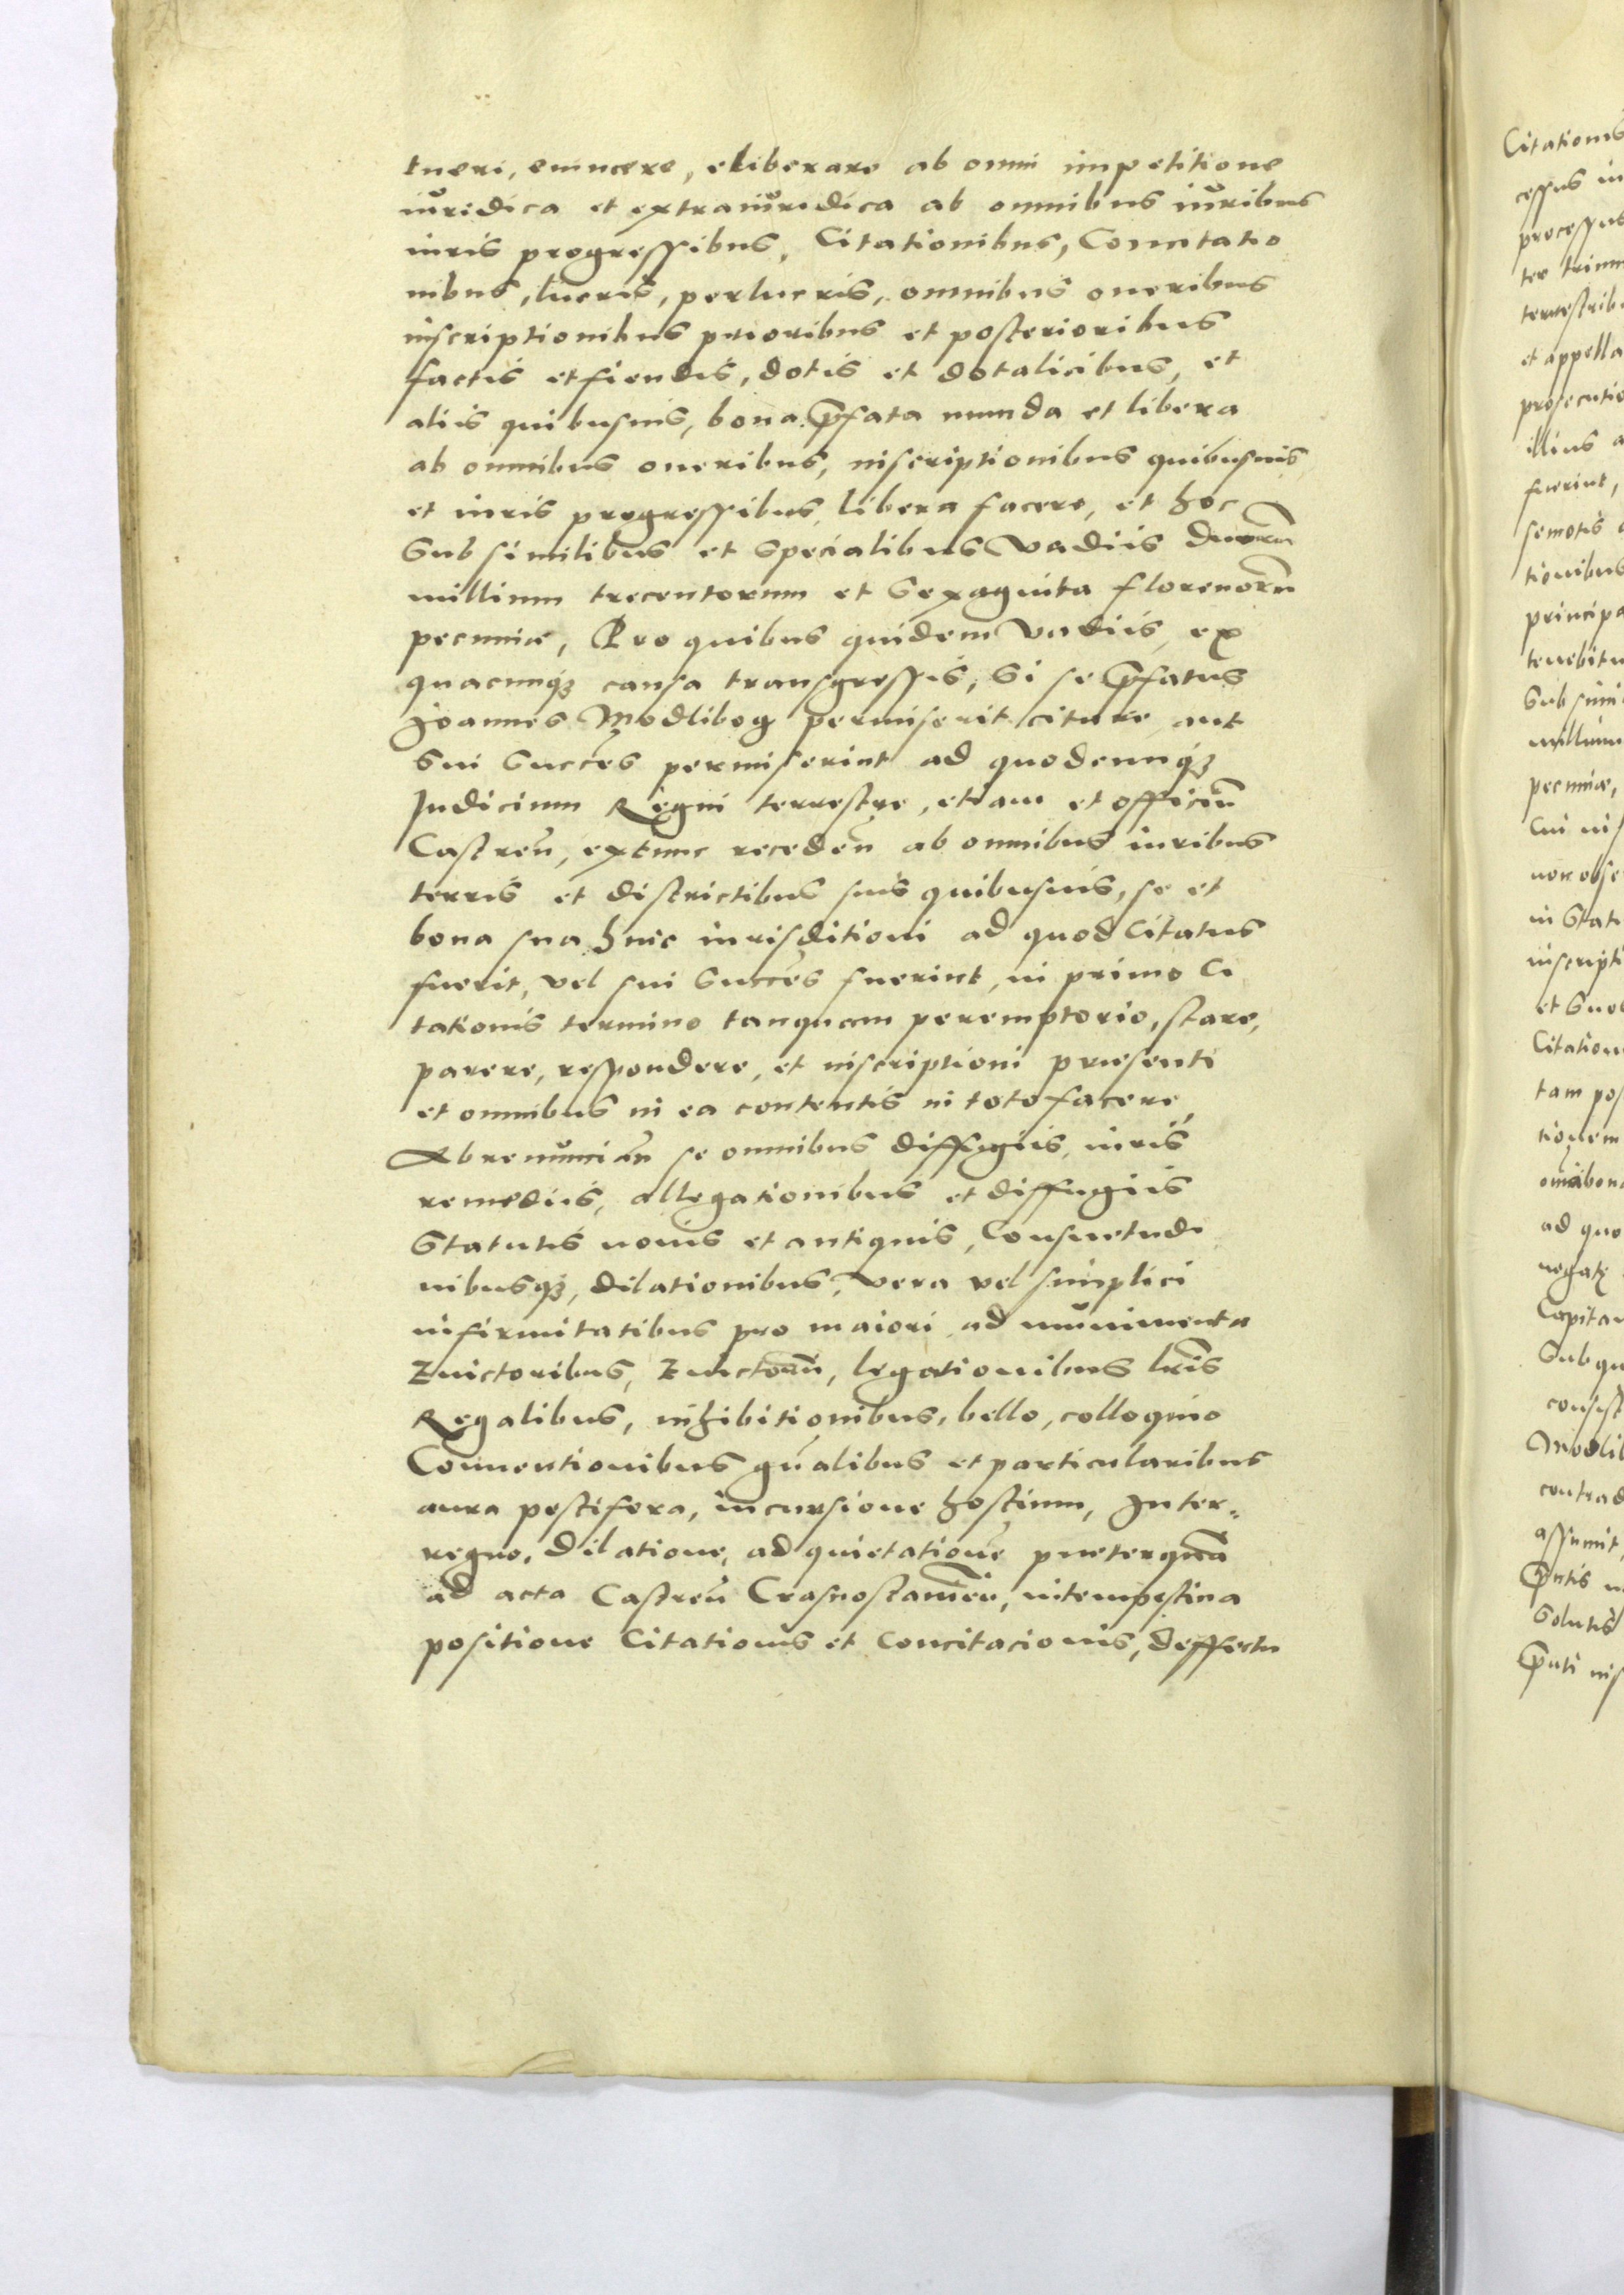 tueri, euincere, eliberare ab omni impetitione
iuridica et extraiuridica ab omnibus iuribus
iuris progressibus, Citationibus, Concitatio
nibus, lucris, perlucris, omnibus oneribus
inscriptionibus prioribus et posterioribus
factis et fiendis, dotis et dotalicibus, et
aliis quibusuis, bona p̄fata munda et libera
ab omnibus oneribus, inscriptionibus quibusuis
et iuris progressibus, libera facere, et hoc
Sub similibus et specialibus Vadiis duorum̄
millium trecentorum et Sexaginta florenorū
pecuniæ, Pro quibus quidem Vadiis, ex
quacunq3 causa transgressis, Si se p̄fatus
Joannes Modlibog permiserit citare, aut
Sui Succ̄es permiserint ad quodcunq3
Judicium Regni terrestre, etiam et officiū
Castren̄, extunc receden̄ ab omnibus iuribus
terris et districtibus suis quibusuis, se et
bona sua huic iurisditioni ad quod Citatus
fuerit, vel sui Succ̄es fuerint, in primo Ci
tationis termino tanquam peremptorio, stare,
parere, respondere, et inscriptioni præsenti
et omnibus in ea contentis in toto facere,
Abrenuncian̄ se omnibus diffugiis, iuris
remediis, allegationibus et diffugiis
Statutis nouis et antiquis, Consuetudi
nibusq3, dilationibus, vera vel simplici
infirmitatibus pro maiori ad munimenta
Euictoribus, Euictorū, legationibus lr̄is
Regalibus, inhibitionibus, bello, colloquio
Conuentionibus gn̄alibus et particularibus
aura pestifera, incursione hostium, Inter-
regno, Dilatione, ad quietationē præterquā
ad acta Castren̄ Crasnostauien̄, intempestiua
positione Citationis et Concitacionis, deffectu
Citationis
cessus in
processus
ter trium
terrestrib
et appella
prosecutio
illius a
fuerint,
semotis
tionibus
principa
tenebitu
Sub simi
millium
pecuniæ,
Cui
non obse
in Stat
inscripti
et
Citation
tam pos
tionem
om̄ibona
ad quo
Capita
Sub qu
consist
Modlib
contrad
assumit,
p̄ntis
Solutis
p̄nti ins